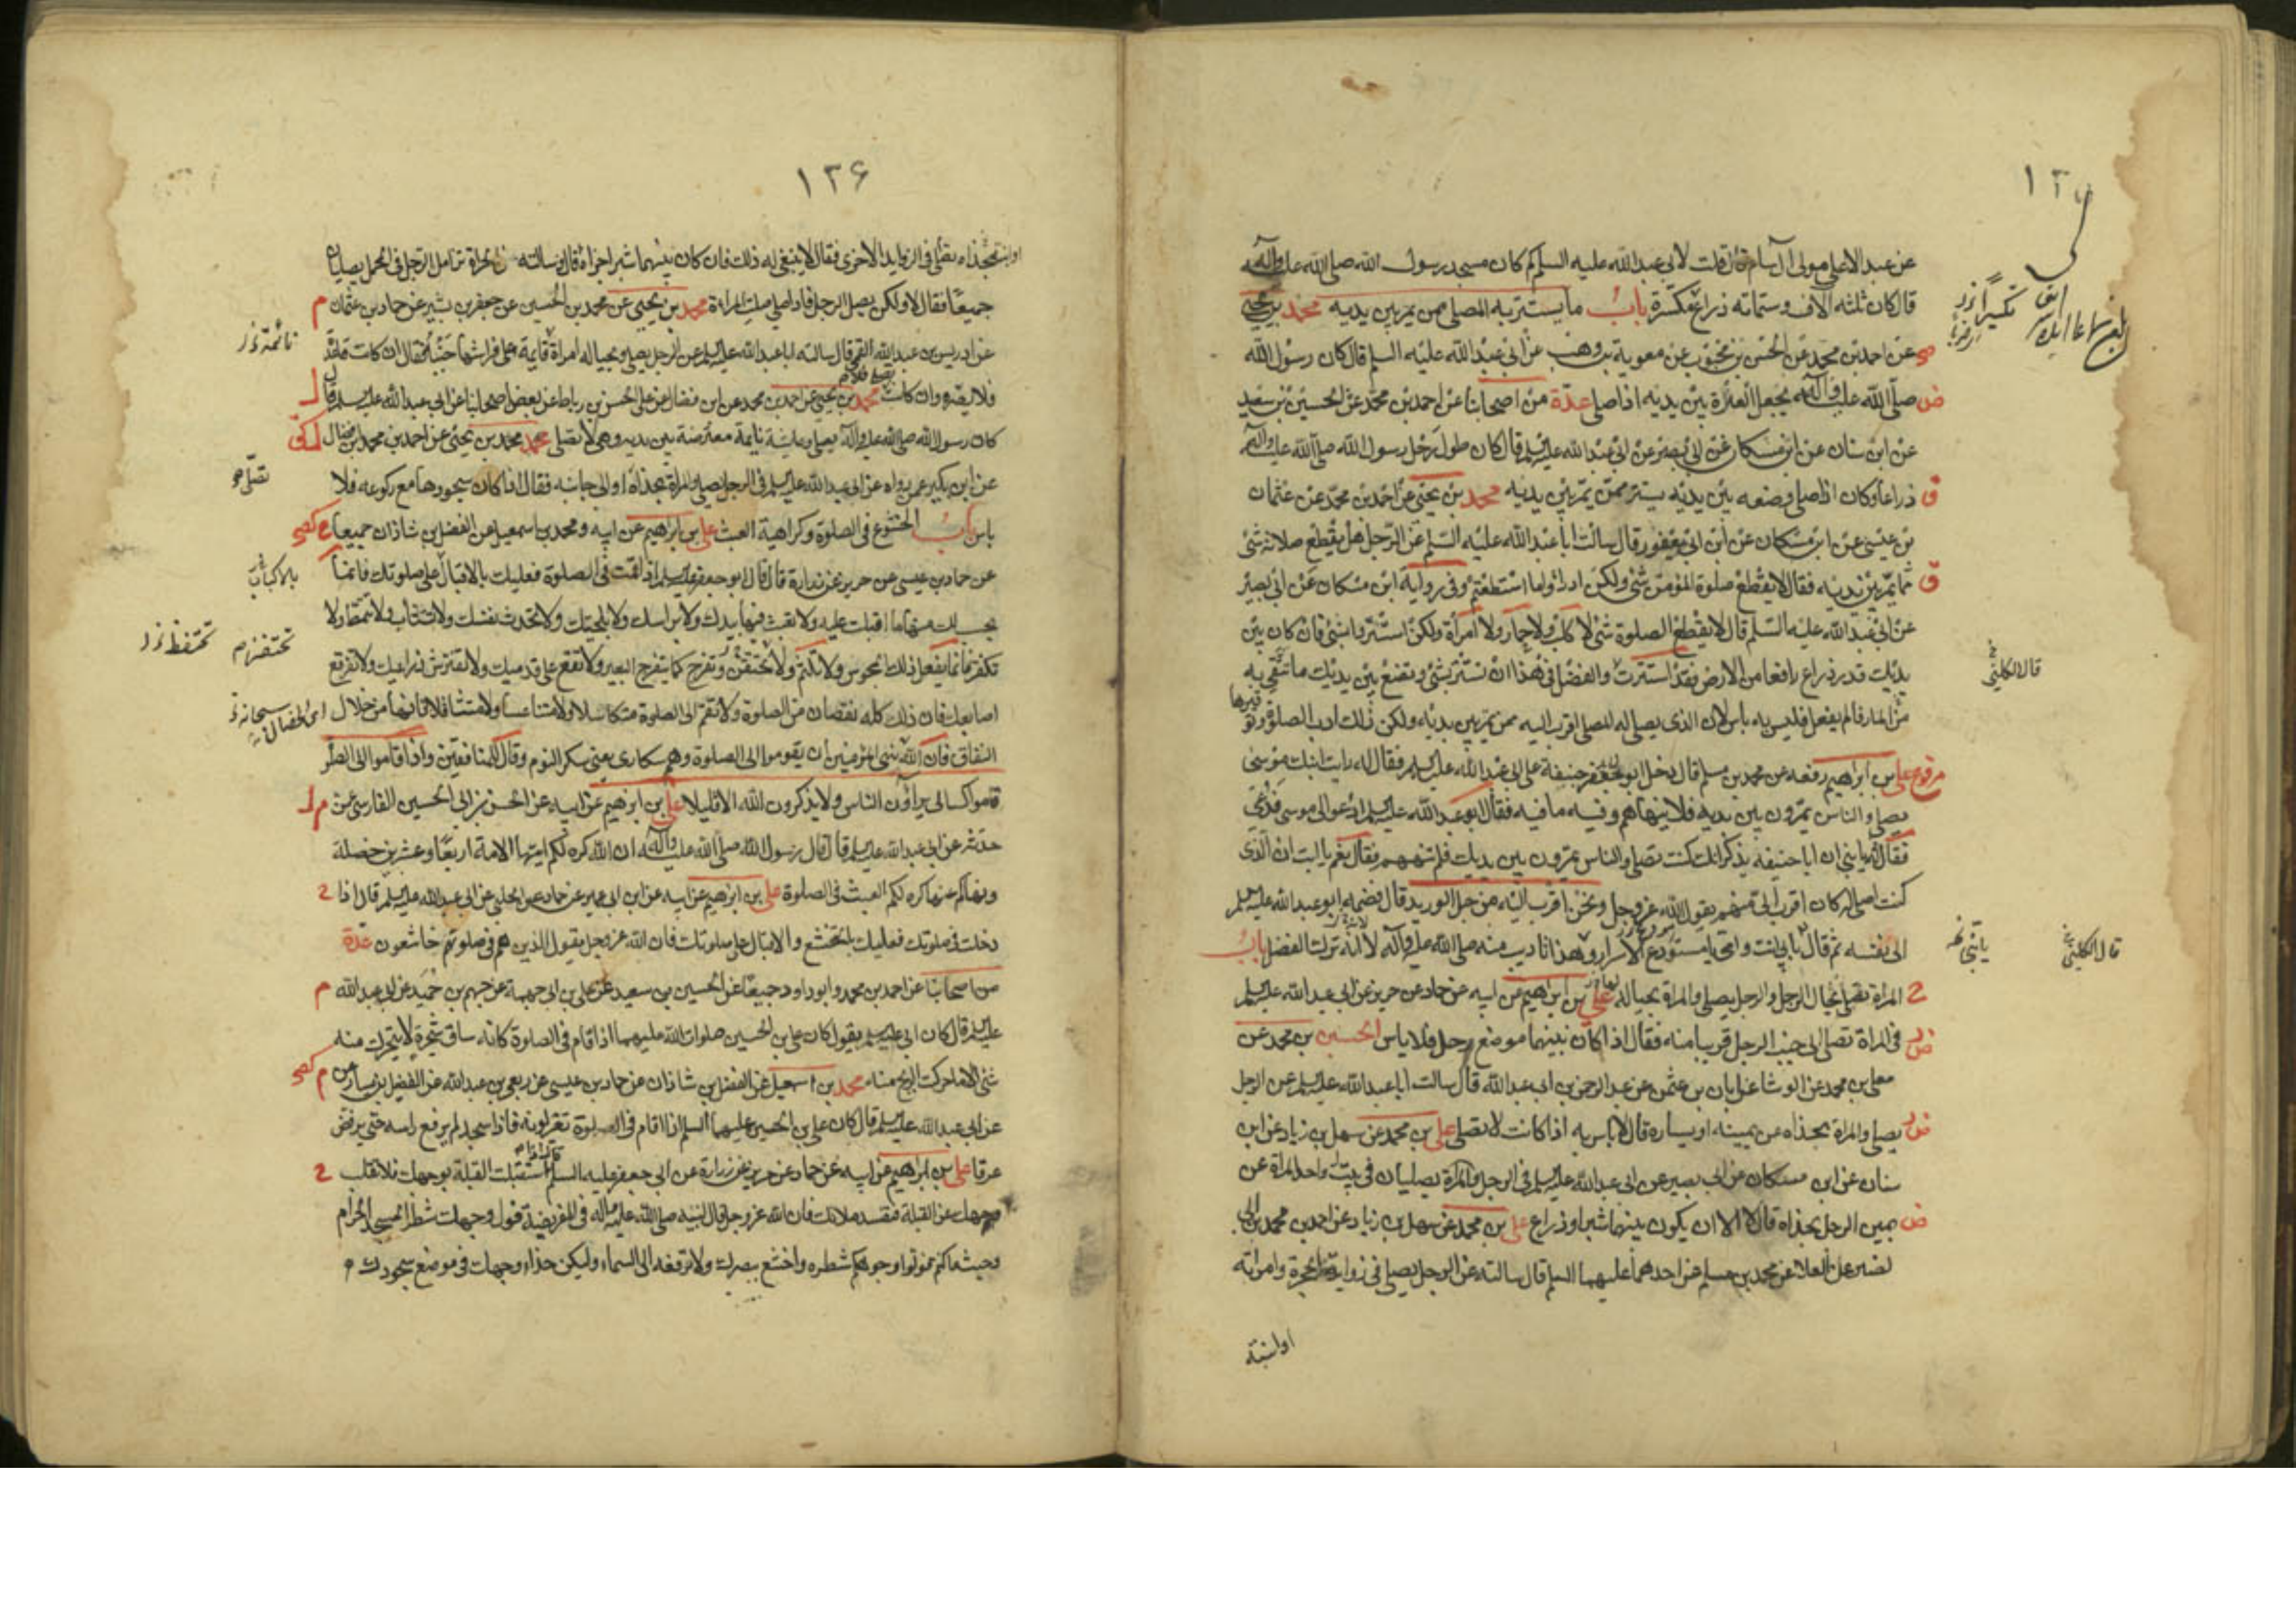 عن عبد الاعلى مولى آل سام قال قلت لابى عبد الله عليه السلم كم كان مسجد رسول الله صلى الله عليه وآله
قال كان ثلثه آلاف وستمائه ذراع مكسرة باب ما يستتر به المصلى ممن يمر بين يديه محمد بن يحيى
عن احمد بن محمد عن الحسن بن محبوب عن معوية بن وهب عن ابى عبد الله عليه السلم قال كان رسول الله
صلى الله عليه وآله يجعل العنزة بين يديه اذا صلى عدة من اصحابنا عن احمد بن محمد عن الحسين بن سعيد
عن ابن سنان عن ابن مسكان عن ابى بصير عن ابى عبد الله عليه السلم قال كان طول رحل رسول الله صلى الله عليه وآله
ذراعا وكان اذا صلى وضعه بين يديه يستتر ممن يمر بين يديه محمد بن يحيى عن احمد بن محمد عن عثمان
بن عيسى عن ابن مسكان عن ابن ابى يعفور قال سالت ابا عبد الله عليه السلم عن الرجل هل يقطع صلاته شئ
مما يمر بين يديه فقال لا يقطع صلوة المؤمن شئ ولكن ادرأوا ما استطعتم وفى رواية ابن مسكان عن ابى بصير
عن ابى عبد الله عليه السلم قال لا يقطع الصلوة شئ لا كلب ولا حمار ولا امرأة ولكن استتروا بشئ فان كان بين
يديك قدر ذراع رافعا من الارض فقد استترت والفضل فى هذا ان تستتر بشئ وتضع بين يديك ما تتقى به
من المار فان لم يفعل فليس به باس لان الذى يصلى له المصلى اقرب اليه ممن يمر بين يديه ولكن ذلك ادب الصلوة وتوقيرها
على بن ابراهيم رفعه عن محمد بن مسلم قال دخل ابو حنيفة على ابى عبد الله عليه السلم فقال له رايت ابنك موسى
يصلى والناس يمرون بين يديه فلا ينهاهم وفيه ما فيه فقال ابو عبد الله عليه السلم ادعوا لى موسى فدعى
فقال له يا بنى ان ابا حنيفه يذكر انك كنت تصلى والناس يمرون بين يديك فلم تنههم فقال نعم يا ابت ان الذى
كنت اصلى له كان اقرب الى منهم يقول الله عز وجل ونحن اقرب اليه من حبل الوريد قال فضمه ابو عبد الله عليه السلم
الى نفسه ثم قال بابى انت وامى يا مستودع الاسرار وهذا تاديب منه صلى الله عليه وآله لا انه ترك الفضل باب
المراة تصلى بحيال الرجل والرجل يصلى والمراة بحياله على بن ابراهيم عن ابيه عن حماد عن حريز عن ابى عبد الله عليه السلم
فى المراة تصلى الى جنب الرجل قريبا منه فقال اذا كان بينهما موضع رحل فلا باس الحسين بن محمد عن
معلى بن محمد عن الوشا عن ابان بن عثمن عن عبد الرحمن بن ابى عبد الله قال سالت ابا عبد الله عليه السلم عن الرجل
يصلى والمراة بحذاه عن يمينه او يساره قال لا باس به اذا كانت لا تصلى على بن محمد عن سهل بن زياد عن ابن
سنان عن ابن مسكان عن ابى بصير عن ابى عبد الله عليه السلم فى الرجل والمراة يصليان فى بيت واحد المراة عن
يمين الرجل بحذاه قال لا الا ان يكون بينهما شبر او ذراع على بن محمد عن سهل بن زياد عن احمد بن محمد بن ابى
نصر عن العلا عن محمد بن مسلم عن احدهما عليهما السلم قال سالته عن الرجل يصلى فى زواية الحجرة وامراته
او ابنته
قال الكلينى
قال الكلينى
١٣۶
او ابنته بحذاه تصلى فى الزوايه الاخرى فقال لا ينبغى له ذلك فان كان بينهما شبر اجزاه قال وسالته عن المراة تزامل الرجل فى المحمل يصليان
جميعا فقال لا ولكن يصلى الرجل فاذا صلى صلت المراة محمد بن يحيى عن محمد بن الحسين عن جعفر بن بشير عن حماد بن عثمان م
عن ادريس بن عبد الله القمى قال سالت ابا عبد الله عليه السلم عن الرجل يصلى وبحياله امراة قايمة على فراشها جنبه فقال ان كانت قاعدة
فلا يضره وان كانت تصلى فلا محمد بن يحيى عن احمد بن محمد عن ابن فضال عن على الحسن بن رباط عن بعض اصحابنا عن ابى عبد الله عليه السلم قال
كان رسول الله صلى الله عليه وآله يصلى وعايشة نايمة معترضة بين يديه وهى لا تصلى محمد بن يحيى عن احمد بن محمد بن فضال
عن ابن بكير عمن رواه عن ابى عبد الله عليه السلم فى الرجل يصلى والمراة بحذاه او الى جانبه فقال اذا كان سجودها مع ركوعه فلا
باس باب الخشوع فى الصلوة وكراهية العبث على بن ابراهيم عن ابيه ومحمد بن اسمعيل عن الفضل بن شاذان جميعا
عن حماد بن عيسى عن حريز عن زرارة قال قال ابو جعفر عليه السلم اذا قمت فى الصلوة فعليك بالاقبال على صلوتك فانما
يحسب لك منها ما اقبلت عليه ولا تعبث فيها بيدك ولا براسك ولا بلحيتك ولا تحدث نفسك ولا تتثاب ولا تتمط ولا
تكفر فانما يفعل ذلك المجوس ولا تلثم ولا تحتفز وتفرج كما يتفرج البعير ولا تقع على قدميك ولا تفترش ذراعيك ولا تفرقع
اصابعك فان ذلك كله نقصان من الصلوة ولا تقم الى الصلوة متكاسلا ولا متناعسا ولا متثاقلا فانها من خلال
النفاق فان الله نهى المؤمنين ان يقوموا الى الصلوة وهم سكارى يعنى سكر النوم وقال للمنافقين واذا قاموا الى الصلوة
قاموا كسالى يراؤن الناس ولا يذكرون الله الا قليلا على بن ابرهيم عن ابيه عن الحسن بن ابى الحسين الفارسى عمن
حدثه عن ابى عبد الله عليه السلم قال قال رسول الله صلى الله عليه وآله ان الله كره لكم ايتها الامة اربعا وعشرين خصلة
ونهاكم عنها كره لكم العبث فى الصلوة على بن ابرهيم عن ابيه عن ابن ابى عمير عن حماد عن الحلبى عن ابى عبد الله عليه السلم قال اذا
دخلت فى صلوتك فعليك بالتخشع والاقبال على صلوتك فان الله عز وجل يقول الذين هم فى صلوتهم خاشعون عدة
من اصحابنا عن احمد بن محمد وابو داود جميعا عن الحسين بن سعيد عن على بن ابى جهمة عن جهم بن حميد عن ابى عبد الله م
عليه السلم قال كان ابى عليه السلم يقول كان على بن الحسين صلوات الله عليهما اذا قام فى الصلوة كانه ساق شجرة لا يتحرك منه
شئ الا ما حركت الريح منه محمد بن اسمعيل عن الفضل بن شاذان عن حماد بن عيسى عن ربعى بن عبد الله عن الفضيل بن يسار
عن ابى عبد الله عليه السلم قال كان على بن الحسين عليهما السلم اذا قام فى الصلوة تغير لونه فاذا سجد لم يرفع راسه حتى يرفض
عرقا على بن ابراهيم عن ابيه عن حماد عن حريز عن زرارة عن ابى جعفر عليه السلم استقبلت القبلة بوجهك فلا تقلب
وجهك عن القبلة فتفسد صلاتك فان الله عز وجل قال لنبيه صلى الله عليه وآله فى الفريضة فول وجهك شطر المسجد الحرام
وحيث ما كنتم فولوا وجوهكم شطره واخشع ببصرك ولا ترفعه الى السماء وليكن حذاء وجهك فى موضع سجودك